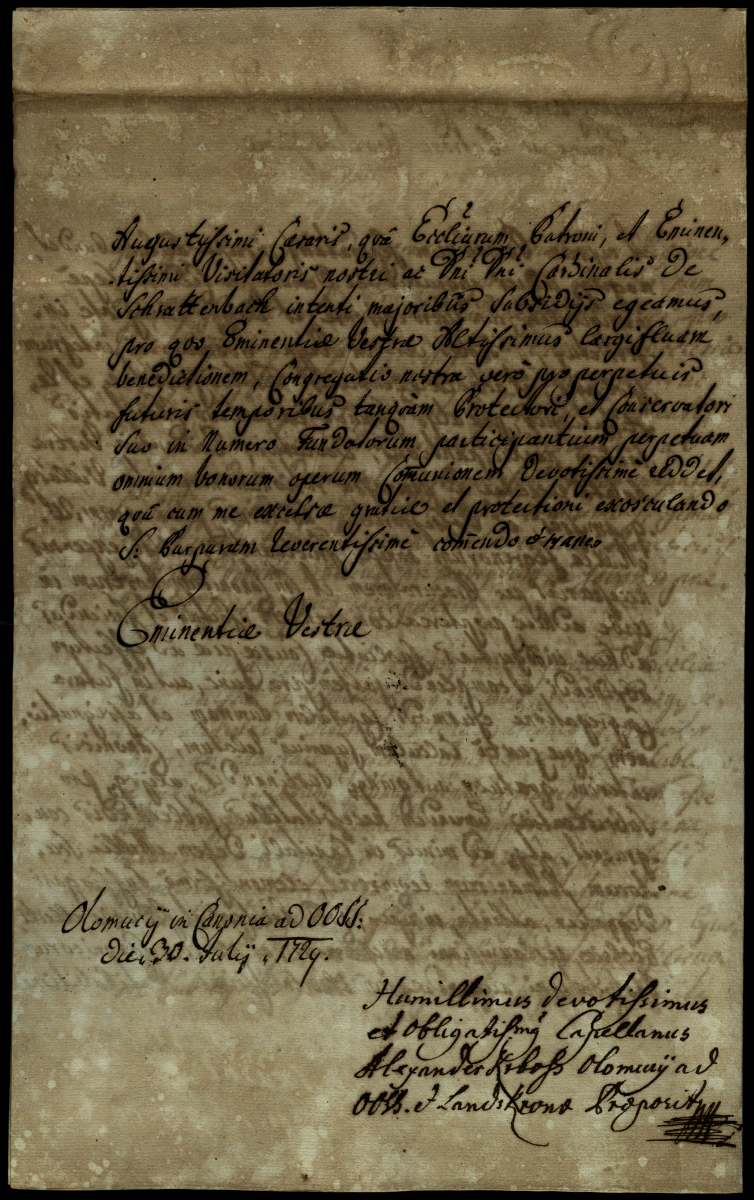 Augustissimi Cæsaris, quà Eccl̃iarum Patroni, et Eminen-
tissimi Visitatoris nostri ac Dñi Dñi Cardinalis de
Schrattenbach intenti majoribus subsidijs egeamus,
pro quo Eminentiæ Vestræ Altissimus largifluam
benedictionem, Congregatio nostra verò pro perpetuis
futuris temporibus tanquam Protectori, et Conservatori
suo in Numero Fundatorum participantium perpetuam
omnium bonorum operum Com̃unionem devotissimè reddet,
quà cum me excelsæ gratiæ et protectioni exosculando
S: Purpuram reverentissimè com̃endo
Eminentiæ Vestræ
Olomucÿ in Canonia ad OOSS:
die 30. Julÿ 1729.
Humillimus devotissimus
et obligatissimq Capellanus
Alexander Olomucÿ ad
OOSS. et Landskronæ Præposit9